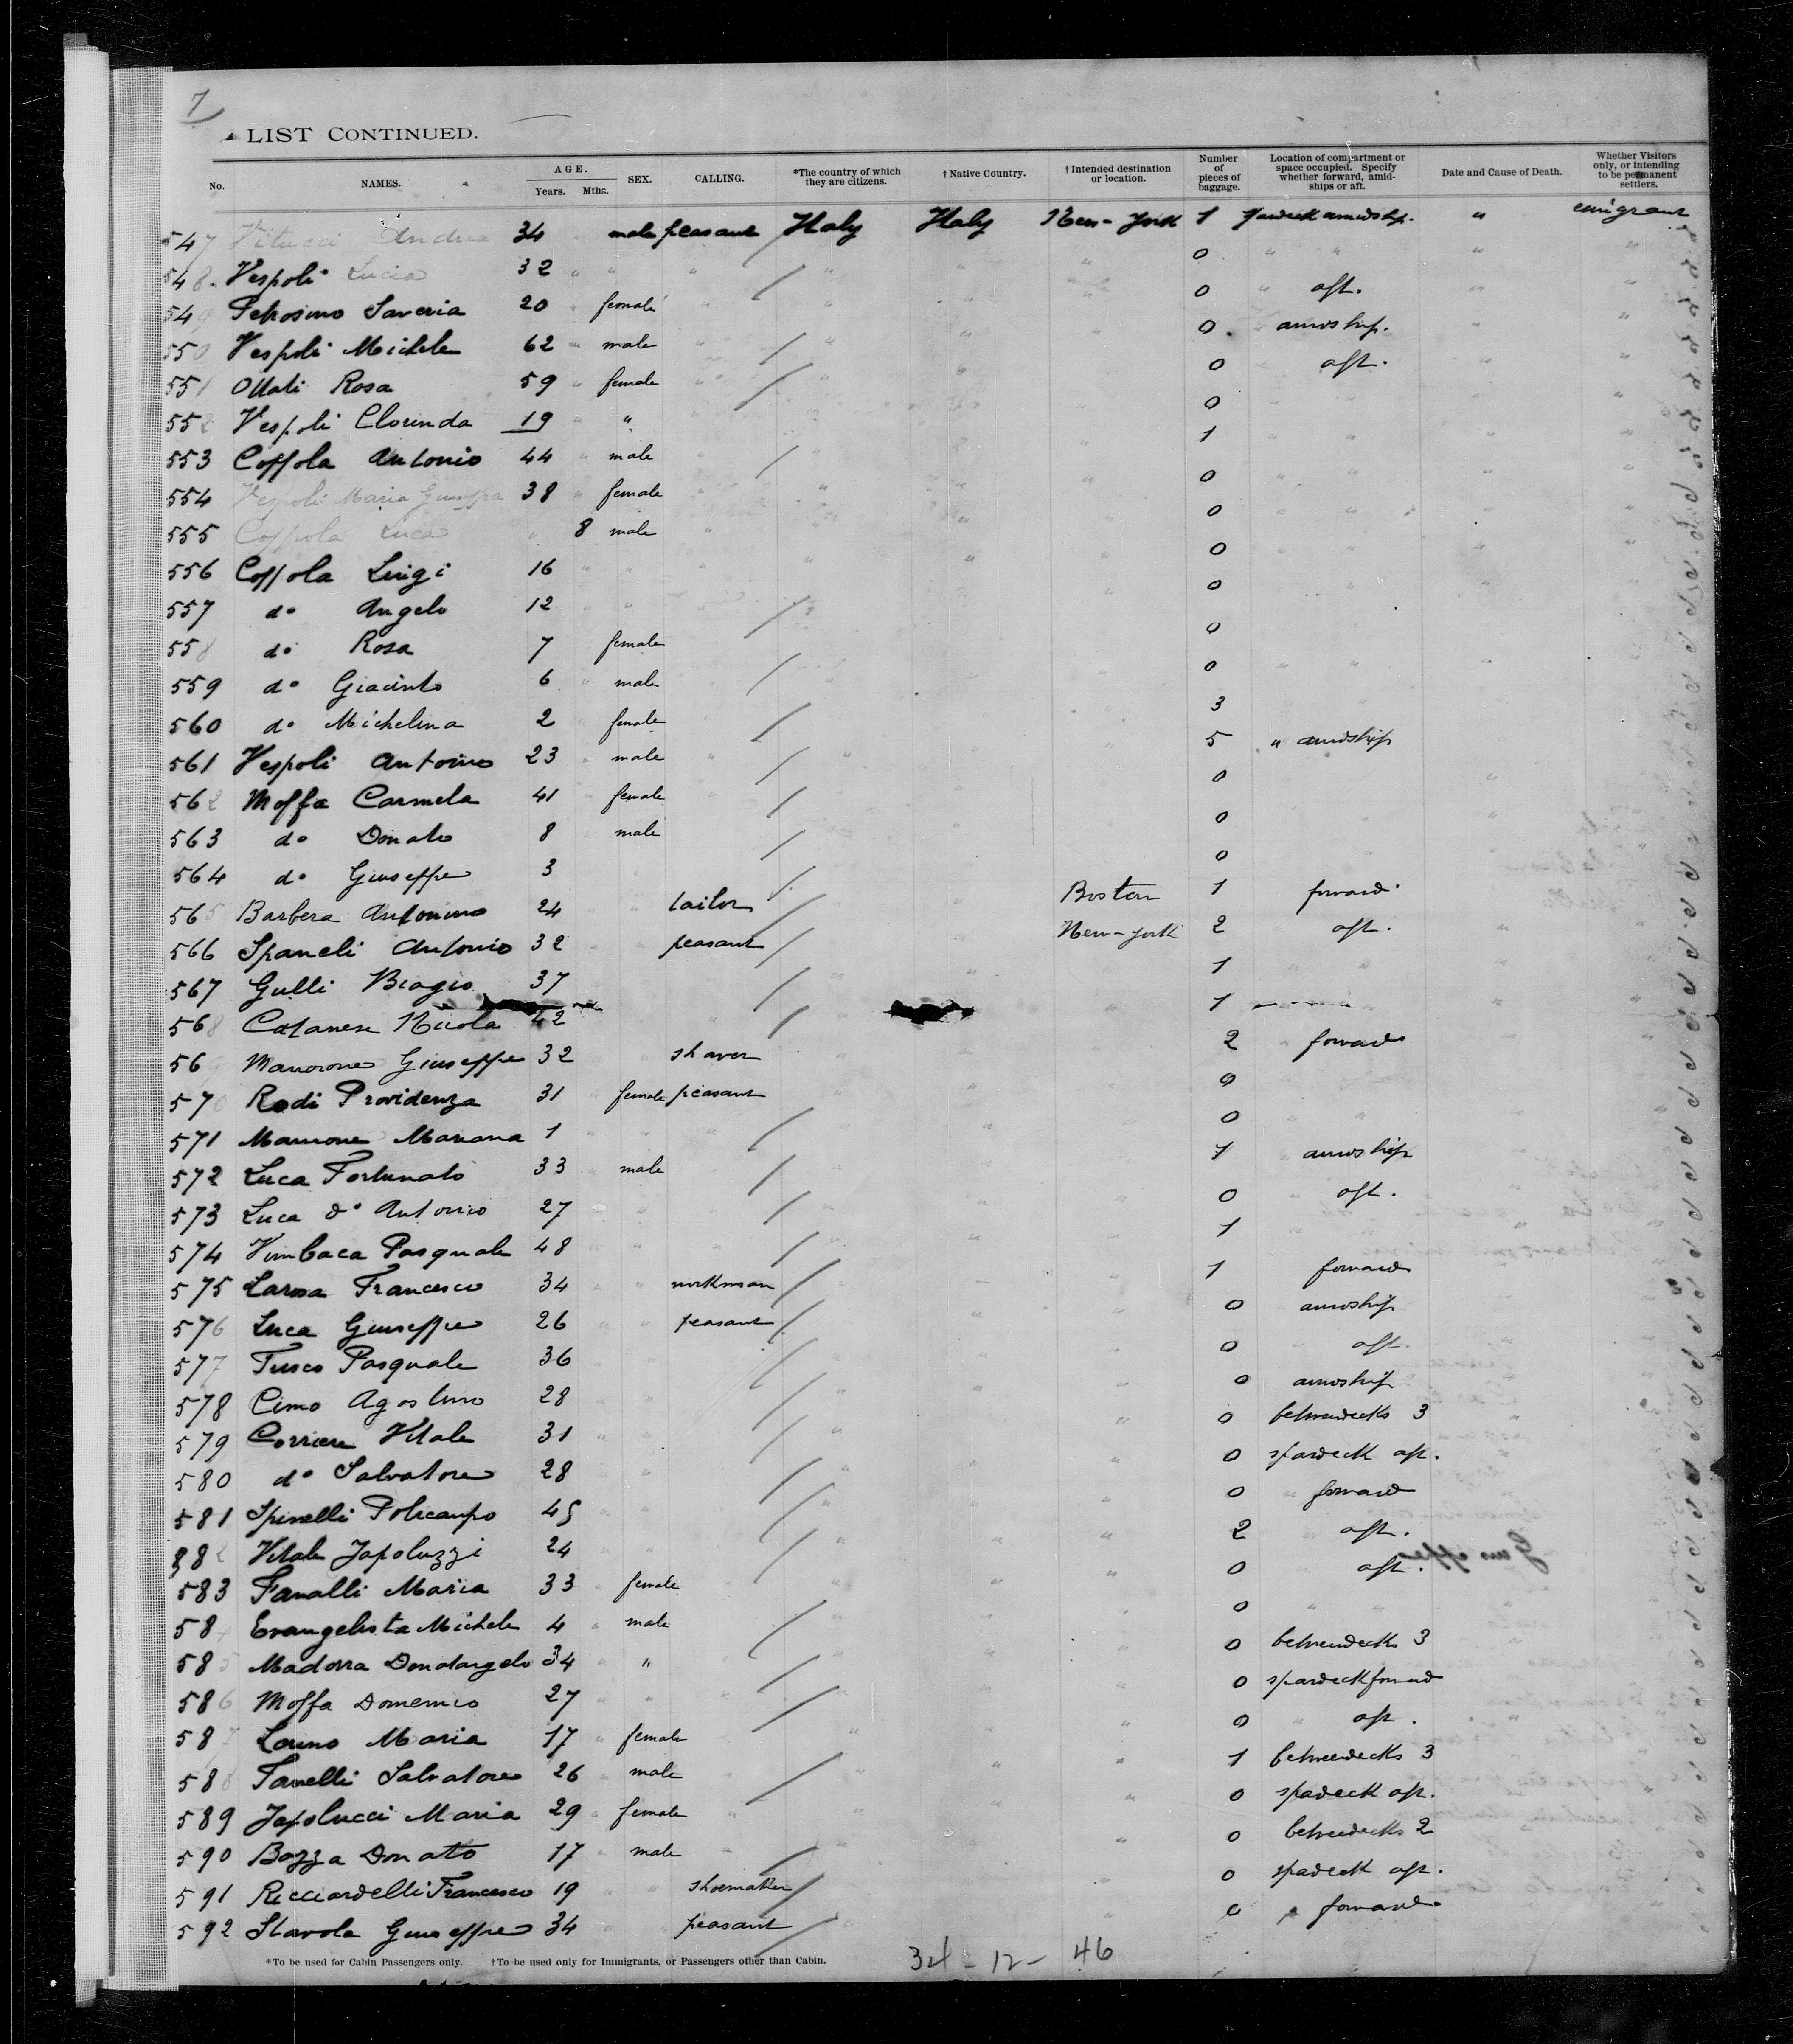 7
LIST CONTINUED.
No. NAMES. AGE. Years. Mths. SEX. CALLING. *The country of which they are citizens. †Native Country. †Intended destination or location. Number of pieces of baggage. Location of compartment or space occupied. Specify whether forward, amidships or aft. Date and Cause of Death. Whether Visitors only, or intending to be permanent settlers.
547 Vitucci Andrea 34 male peasant Italy Italy New-York 1 spardeck amidship. " emigrant
548 Vespoli Lucia 32 " " " " " " 0 " " " "
549 Petrosino Saveria 20 " female " 0 " aft. " "
550 Vespoli Michele 62 " male " " " " 0 amidship. " "
551 Ottati Rosa 59 " female " " " 0 aft. " "
552 Vespoli Clorinda 19 " " 0
553 Coppola Antonio 44 " male 1
554 Vespoli Maria Giuseppa 38 " female 0
555 Coppola Luca " 8 male " 0
556 Coppola Luigi 16 " " 0
557 do Angelo 12 " " 0
558 do Rosa 7 female 0
559 do Giacinto 6 " male 0
560 do Michelina 2 female 3
561 Vespoli Antonio 23 male 5 " amidship
562 Moffa Carmela 41 female 0
563 do Donato 8 male 0
564 do Giuseppe 3 0
565 Barbera Antonino 24 tailor Boston 1 forward
566 Spaneli Antonio 32 peasant New-York 2 aft.
567 Gulli Biagio 37 1
568 Catanese Nicola 42 1
56 Giuseppe 32 shaver 2 forward
570 Rodi Providenza 31 female peasant 0
571 Mariana 1 0
572 Luca Fortunato 33 male 1 amidship
573 Luca do Antonio 27 0 aft.
574 Vimbaca Pasquale 48 1
575 Larosa Francesco 34 workman 1 forward
576 Luca Giuseppe 26 peasant 0 amidship
577 Tusco Pasquale 36 0 aft.
578 Cimo Agostino 28 0 amidship
579 Corriere Vitale 31 0 betweendecks 3
580 do Salvatore 28 0 spardeck aft.
581 Spinelli Policarpo 45 0 forward
582 Vitale Japoluzzi 24 2 aft.
583 Fanalli Maria 33 female 0 aft.
584 Evangelista Michele 4 male 0 " "
585 Madorra Donatangelo 34 " 0 betweendecks 3
586 Moffa Domenico 27 0 spardeck forward
587 Maria 17 female 0 " aft.
588 Fanelli Salvatore 26 male 1 betweendecks 3
589 Japolucci Maria 29 female 0 spardeck aft.
590 Bozza Donato 17 male 0 betweendecks 2
591 Ricciardelli Francesco 19 shoemaker 0 spardeck aft.
592 Stavola Giuseppe 34 peasant 0 " forward
*To be used for Cabin Passengers only. †To be used only for Immigrants, or Passengers other than Cabin.
34 - 12 - 46